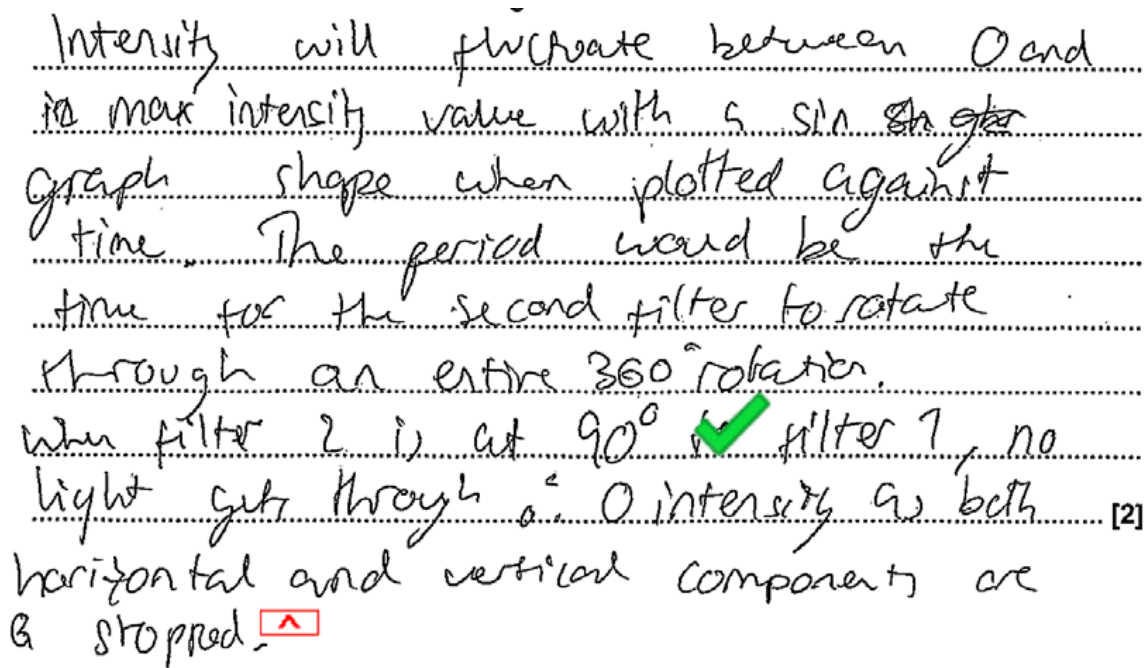 Intensity will fluctuate between 0 and
its max intensity value with a sin
graph shape when plotted against
time. The period would be the
time for the second filter to rotate
through an entire 360° rotation.
when filter 2 is at 90° to filter 1, no
light gets through ∴ 0 intensity as both [2]
horizontal and vertical components are
stopped.